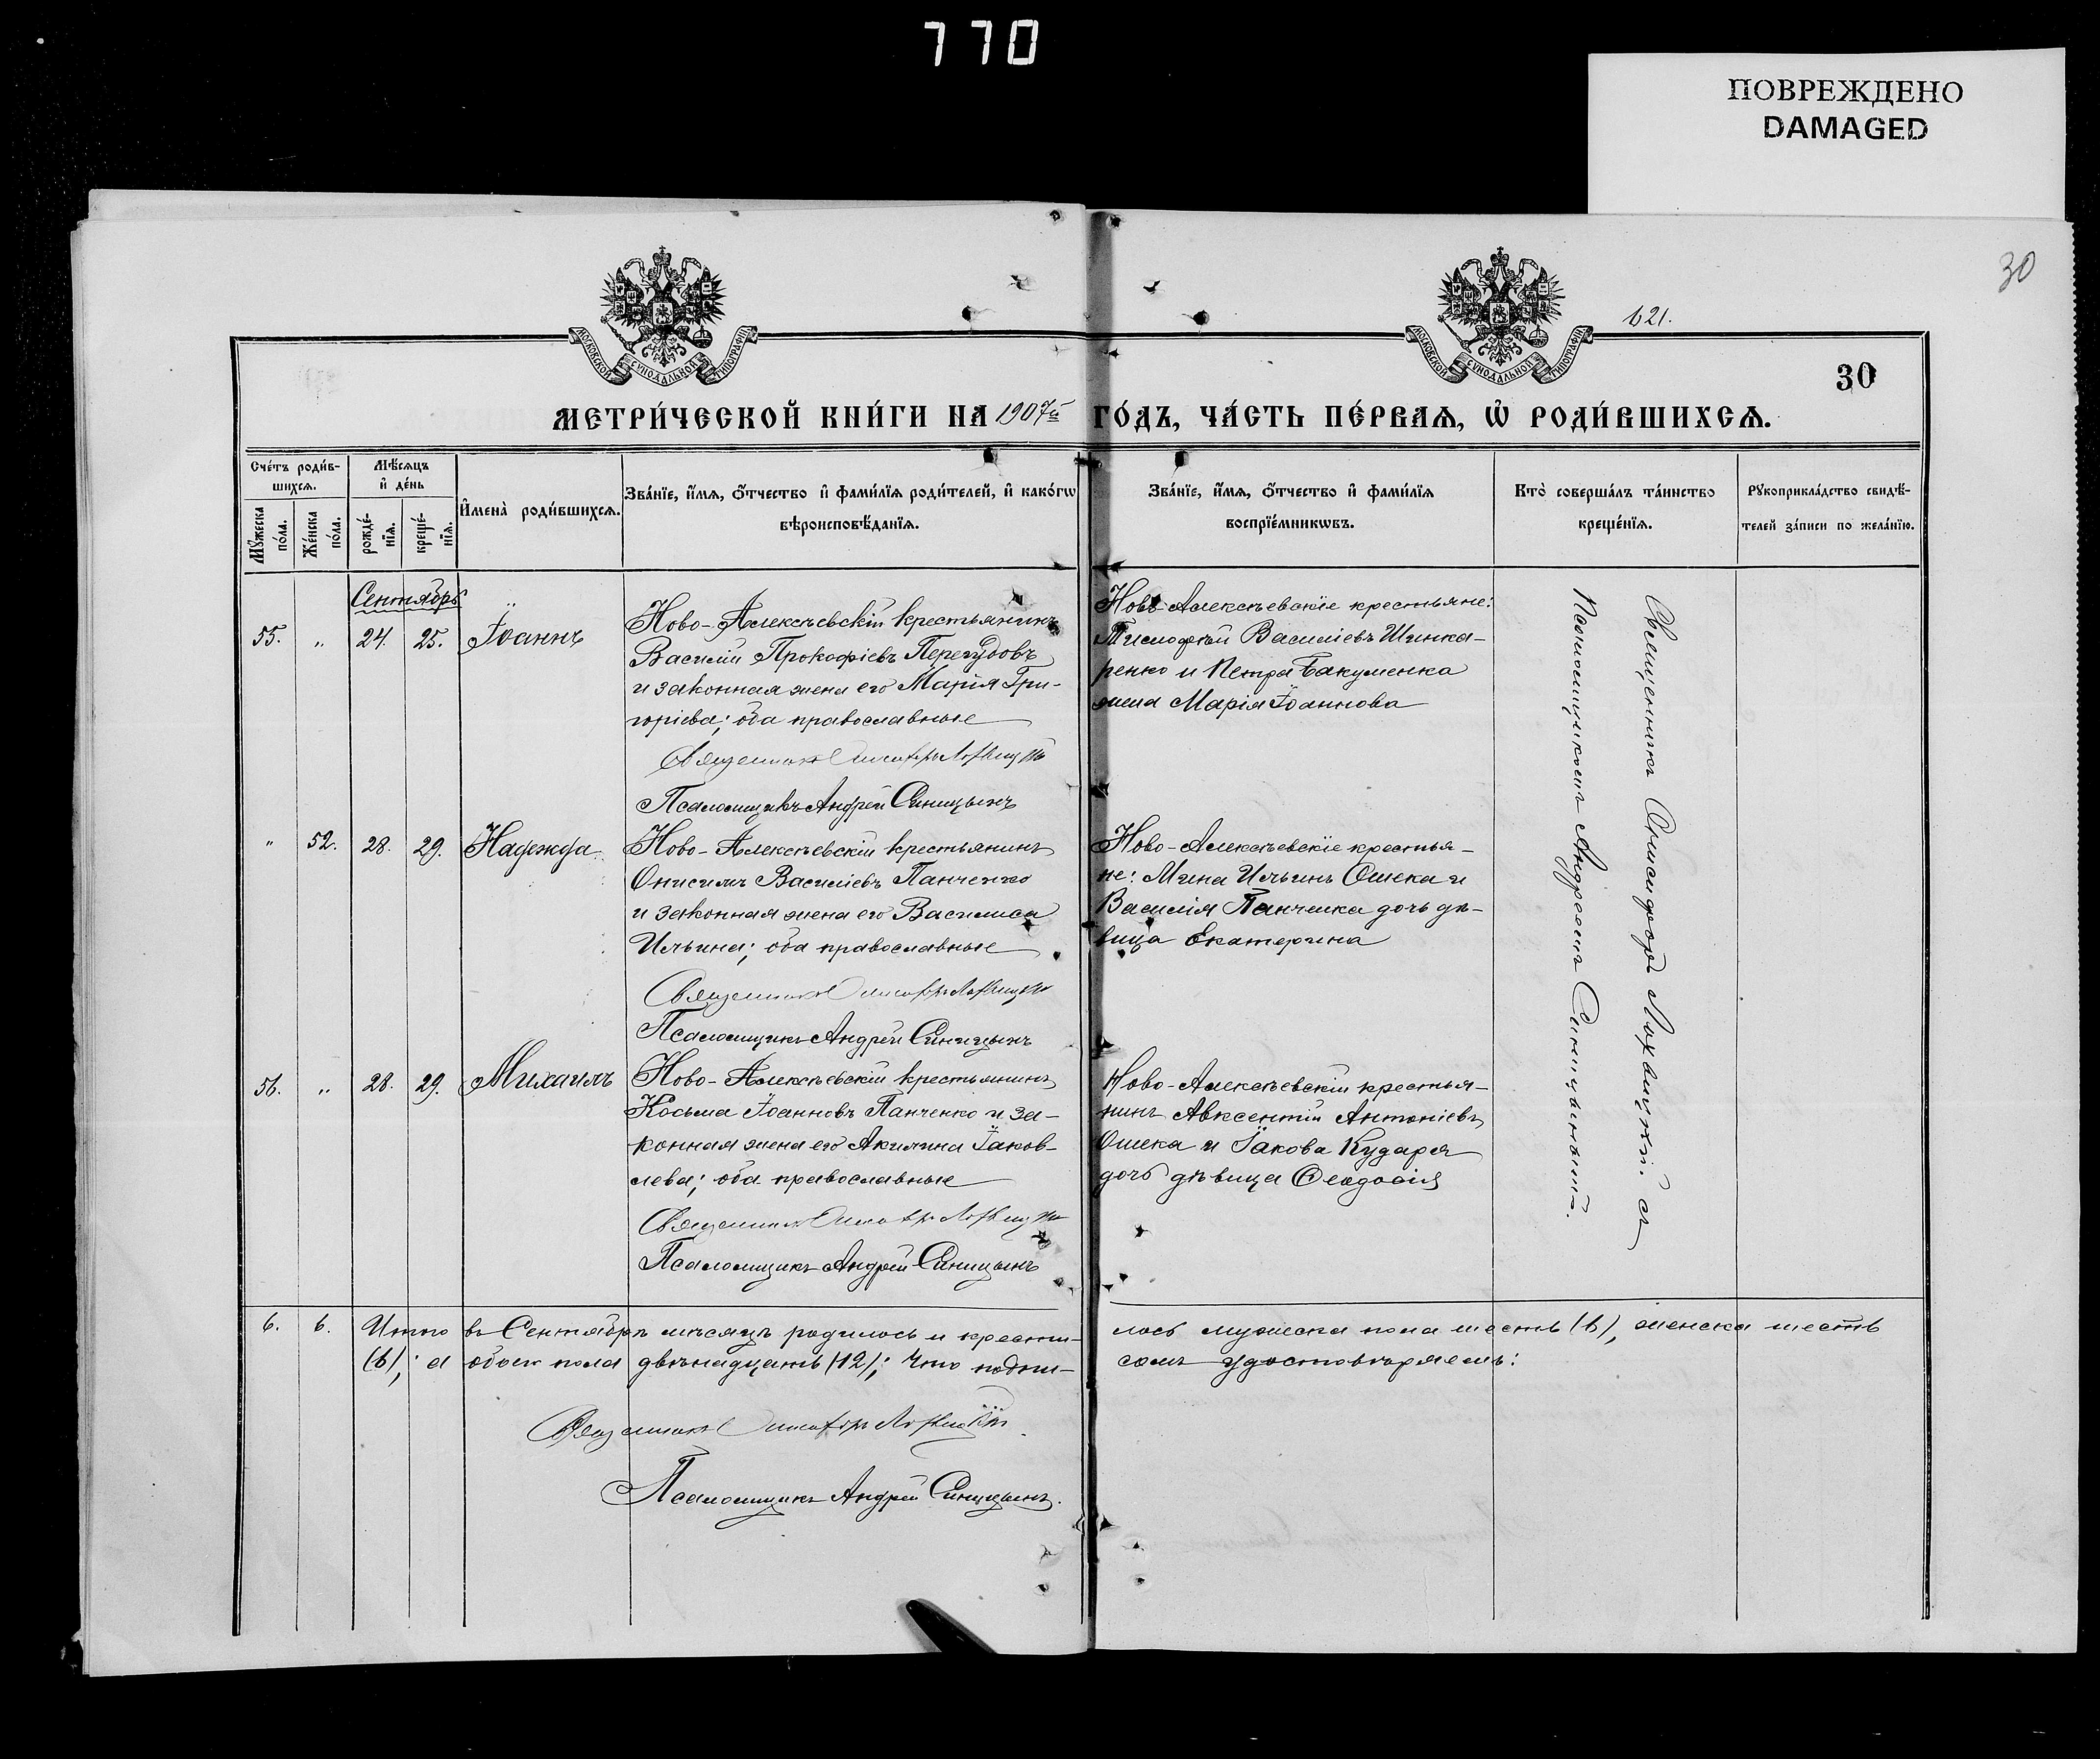 770
ПОВРЕЖДЕНО
DAMAGED
30
621.
30
МОСКОВСКОЙ СѴНОДАЛЬНОЙ ТИПОГРАФІИ
МОСКОВСКОЙ СѴНОДАЛЬНОЙ ТИПОГРАФІИ
МЕТРИ́ЧЕСКОЙ КНИ́ГИ НА 1907й ГО́ДЪ, ЧА́СТЬ ПЕ́РВАѦ, Ѡ҆ РОДИ́ВШИХСѦ.
Сче́тъ роди́в-
шихсѧ.
Мꙋ́жеска по́ла.
Же́нска по́ла.
Мѣ́сѧцъ
и҆ де́нь
рожде́-
нїѧ.
креще́-
нїѧ.
И҆мена̀ роди́вшихсѧ.
Зва́нїе, и҆́мѧ, ѻ҆́тчество и҆ фами́лїѧ роди́телей, и҆ како́гѡ
вѣроисповѣ́данїѧ.
Зва́нїе, и҆́мѧ, ѻ҆́тчество и҆ фами́лїѧ
воспрїе́мникѡвъ.
Кто̀ соверша́лъ та́инство
креще́нїѧ.
Рꙋкоприкла́дство свидѣ́-
телей за́писи по жела́нїю.
Сентябрь
55. „ 24. 25. Іоаннъ
Ново-Алексѣевскій крестьянинъ
Василій Прокофіевъ Перегудовъ
и законная жена его Марія Гри-
горіева; оба православные
Священникъ Онисифоръ Лохвицкій
Псаломщикъ Андрей Синицынъ
Ново-Алексѣевскіе крестьяне:
Тимофей Василіевъ Шинка-
ренко и Петра Бакуменка
жена Марія Іоаннова
Священникъ Онисифоръ Лохвицкій съ
Псаломщикомъ Андреемъ Синицынымъ.
„ 52. 28. 29. Надежда
Ново-Алексѣевскій крестьянинъ
Онисимъ Василіевъ Панченко
и законная жена его Василиса
Ильина; оба православные
Священникъ Онисифоръ Лохвицкій
Псаломщикъ Андрей Синицынъ
Ново-Алексѣевскіе крестья-
не: Мина Ильинъ Ошека и
Василія Панченка дочь дѣ-
вица Екатерина
56. „ 28. 29. Михаилъ
Ново-Алексѣевскій крестьянинъ
Косьма Іоанновъ Панченко и за-
конная жена его Акилина Іаков-
лева; оба православные
Священникъ Онисифоръ Лохвицкій
Псаломщикъ Андрей Синицынъ
Ново-Алексѣевскій крестья-
нинъ Авксентій Антоніевъ
Ошека и Іакова Кударя
дочь дѣвица Ѳеодосія
6. 6. Итого въ Сентябрѣ мѣсяцѣ родилось и крести-
лось мужеска пола шесть (6), женска шесть
(6); а обоего пола двѣнадцать (12); Что подпи-
сомъ удостовѣряемъ:
Священникъ Онисифоръ Лохвицкій
Псаломщикъ Андрей Синицынъ.